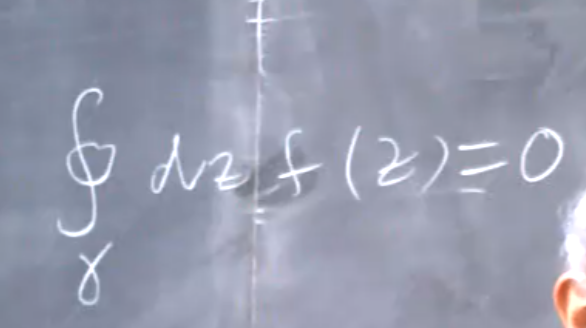 ∮_γ dz f(z) = 0